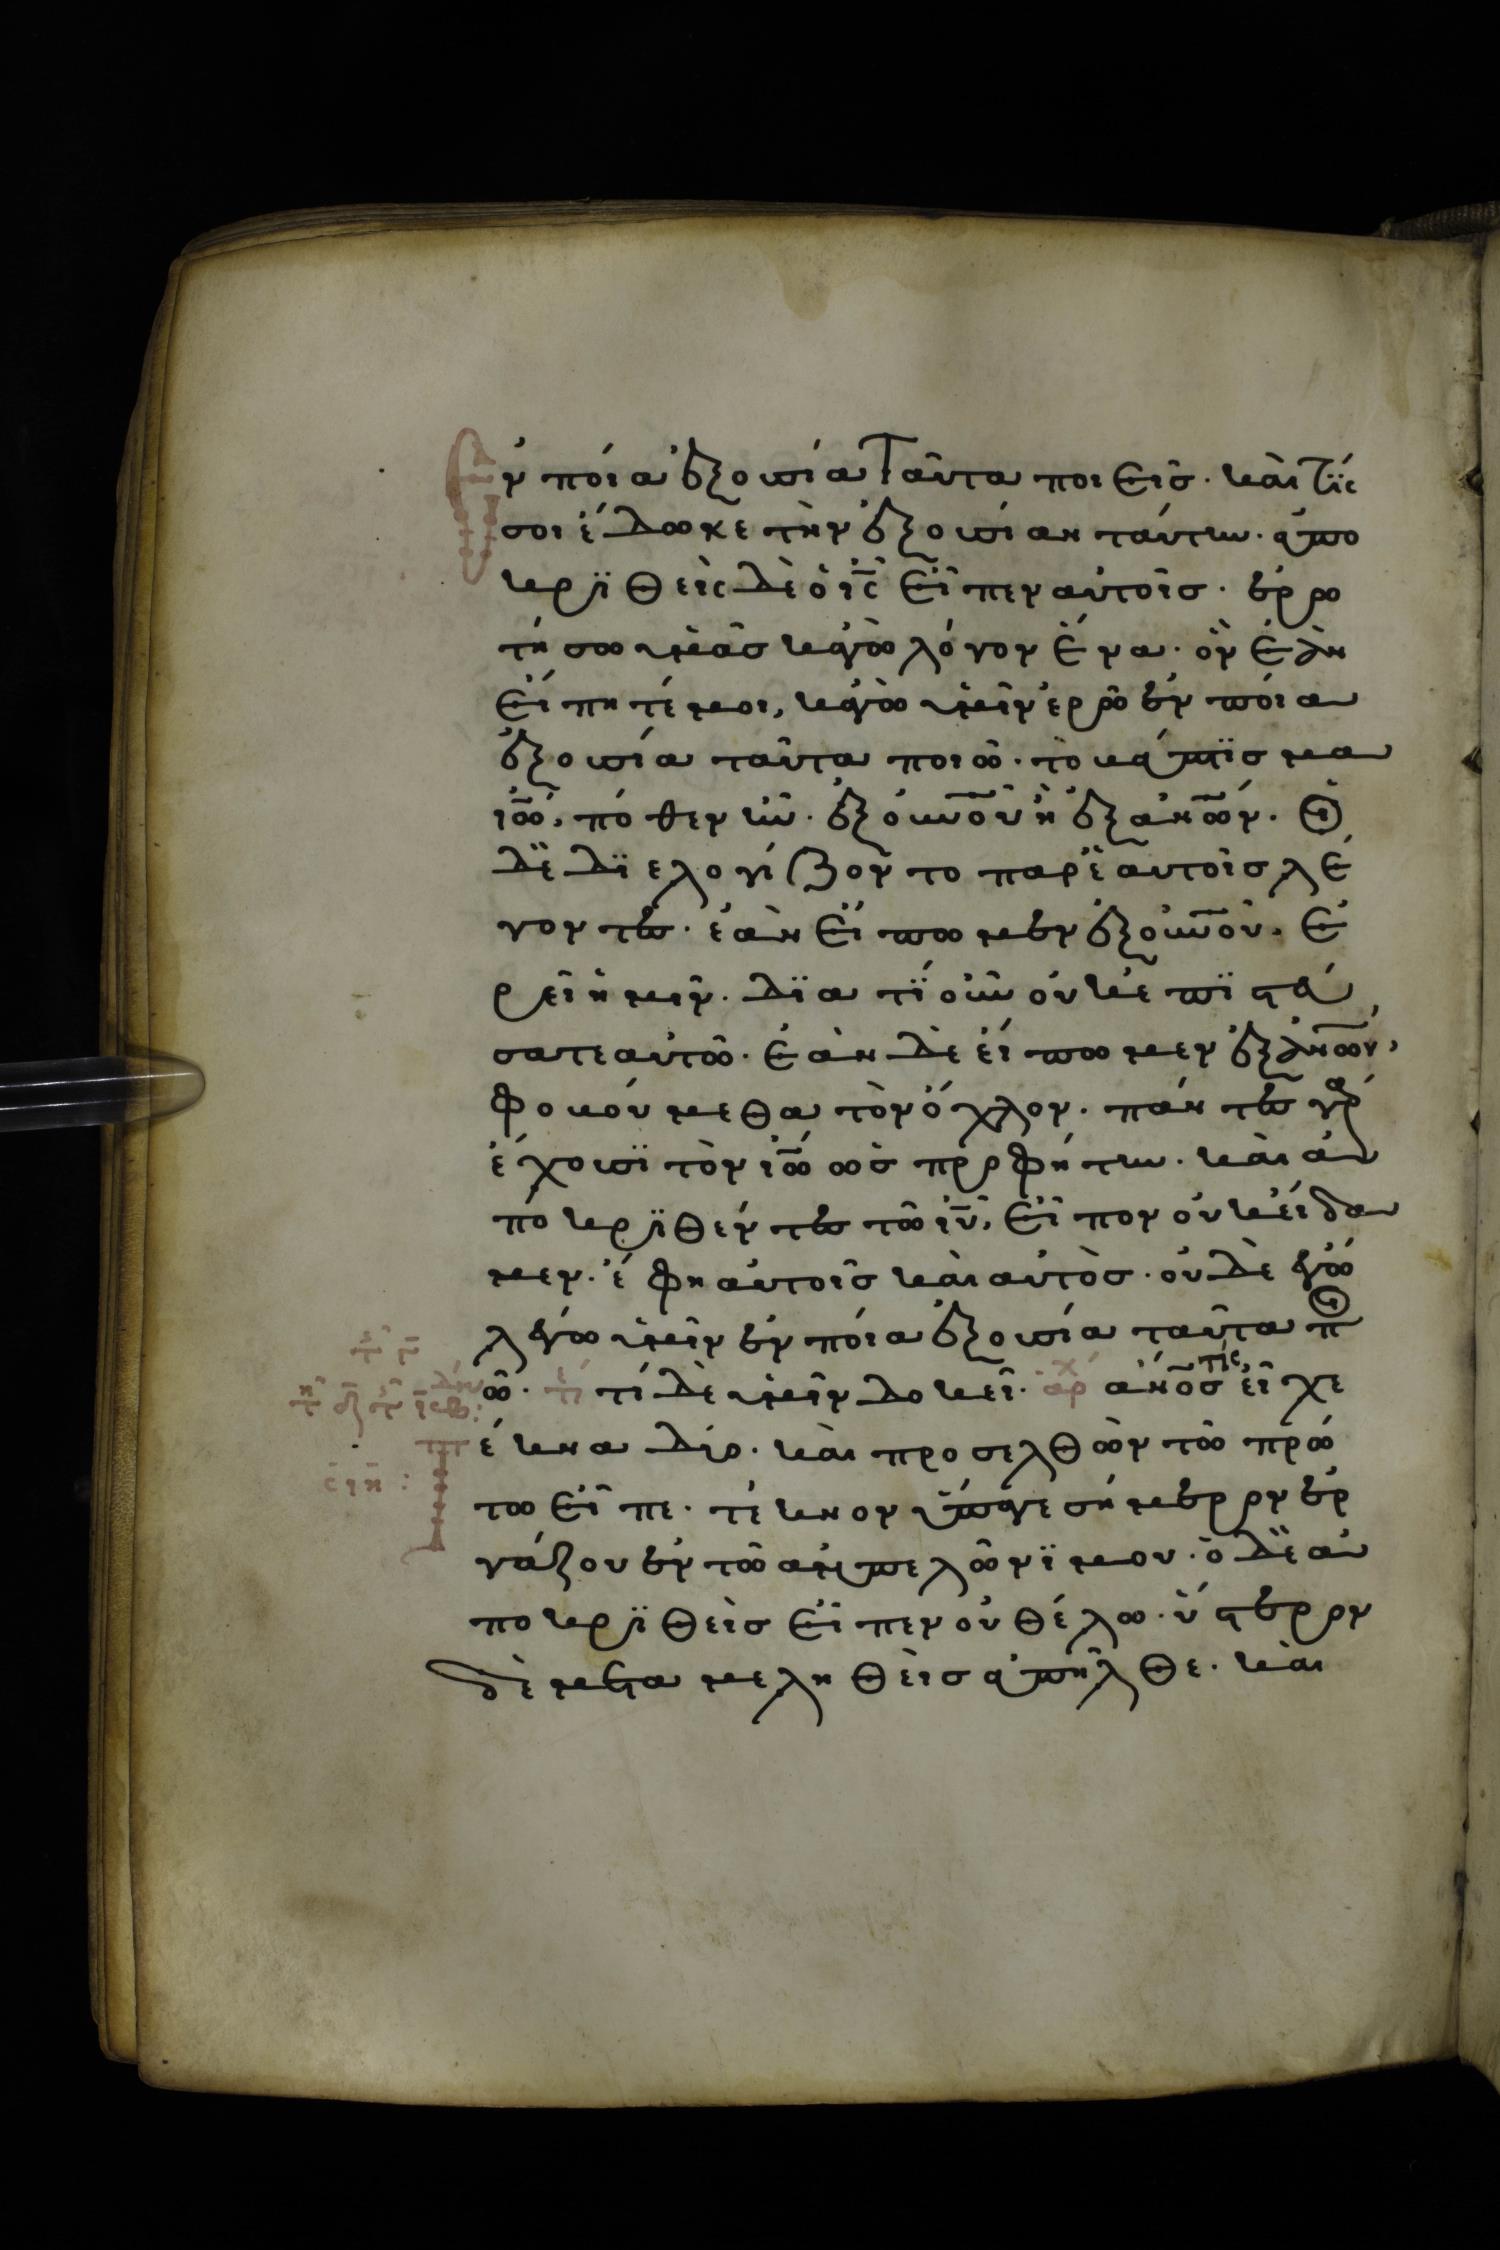 Ἐν ποία ἐξουσία ταῦτα ποιεῖσ· καὶ τίς
σοι ἔδωκε τὴν ἐξουσίαν ταύτην· ἀπο
κριθεὶς δὲ ὁ ις εἶπεν αὐτοῖσ· ἐρω
τήσω ὑμᾶσ κἀγὼ λόγον ἕνα· ὃν ἐὰν
εἴπητέ μοι, κἀγὼ ὑμῖν ἐρῶ ἐν ποία
ἐξουσία ταῦτα ποιῶ· τὸ βάπτισμα
ιω, πόθεν ἦν· ἐξ ουνου ἢ ἐξ ανων· οἱ
δὲ διελογίζοντο παρ' ἑαυτοῖσ λέ
γοντες· ἐὰν εἴπωμεν ἐξ ουνου, ἐ
ρεῖ ἡμῖν· διατί οὖν οὐκ ἐπιστεύ
σατε αὐτῶ· ἐὰν δὲ εἴπωμεν ἐξ ανων,
φοβούμεθα τὸν ὄχλον· πάντες γὰρ
ἔχουσι τὸν ιω ὡσ προφήτην· καὶ ἀ
ποκριθέντες τῶ ιυ, εἶπον οὐκ οἴδα
μεν· ἔφη αὐτοῖσ καὶ αὐτὸσ· οὐδὲ ἐγὼ
λέγω ὑμῖν ἐν ποία ἐξουσία ταῦτα ποι
ῶ· τί δὲ ὑμῖν δοκεῖ· ἀρχ ανοσ τὶς εἶχε
τέκνα δύο· καὶ προσελθὼν τῶ πρώ
τω εἶπε· τέκνον ὕπαγε σήμερον ἐρ
γάζου ἐν τῶ ἀμπελῶνι μου· ὁ δὲ ἀ
ποκριθεὶσ εἶπεν οὐ θέλω· ὕστερον
δὲ μεταμεληθεὶσ ἀπῆλθε· καὶ